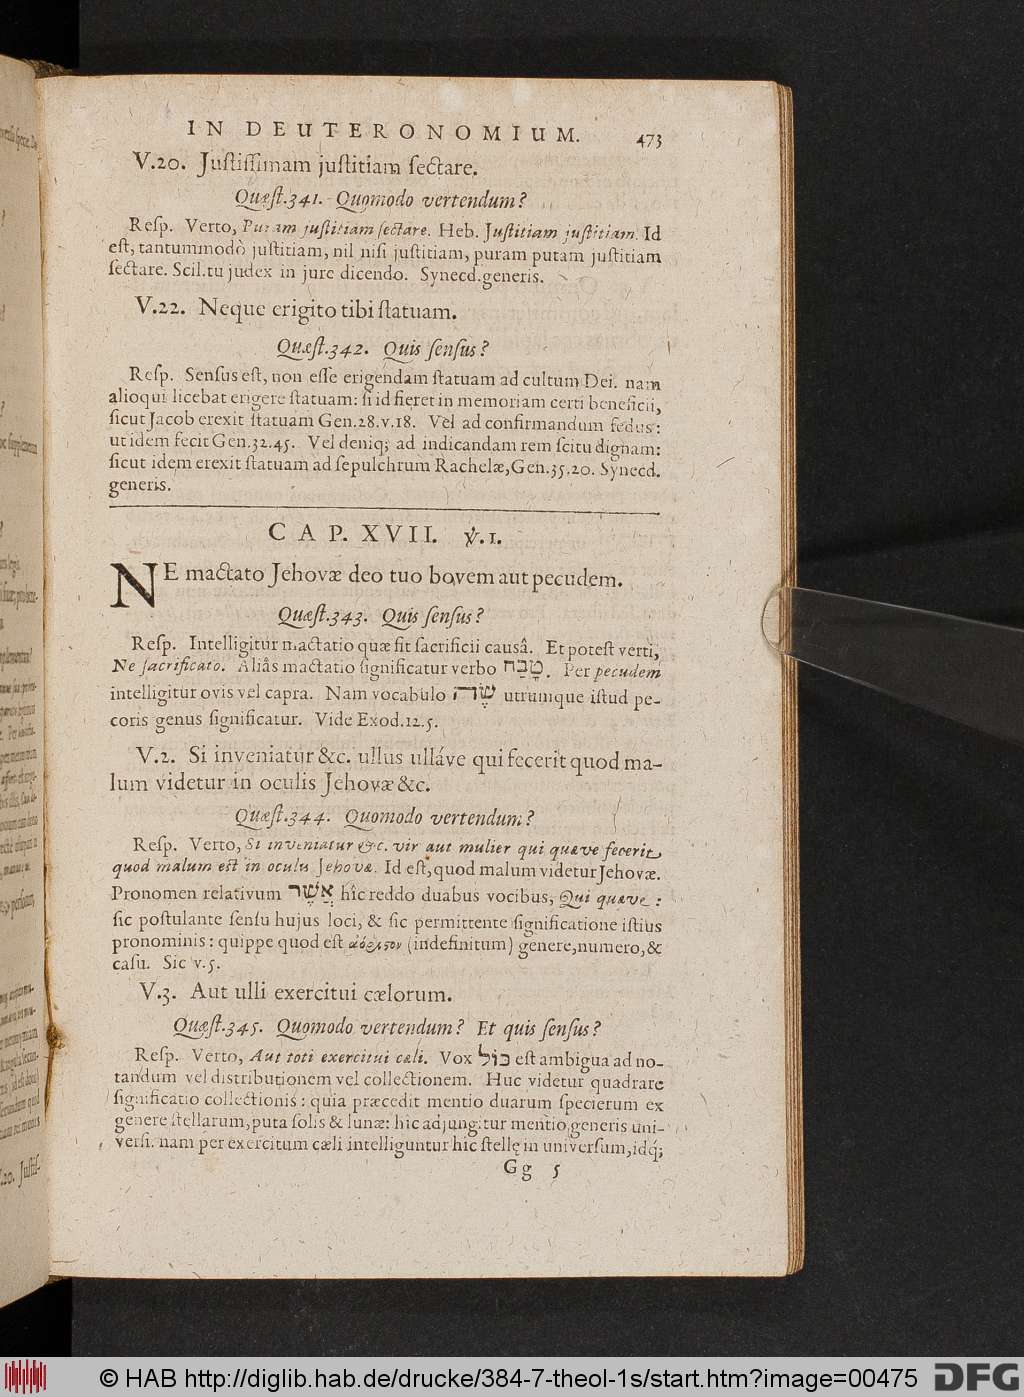 IN DEUTERONOMIUM. 473
V.20. Juſtiſſimam juſtitiam ſectare.
Quæſt.341. Quomodo vertendum?
Reſp. Verto, Puram juſtitiam ſectare. Heb. Juſtitiam juſtitiam. Id
eſt, tantummodò juſtitiam, nil niſi juſtitiam, puram putam juſtitiam
ſectare. Scil. tu judex in jure dicendo. Synecd. generis.
V.22. Neque erigito tibi ſtatuam.
Quæſt.342. Quis ſenſus?
Reſp. Senſus eſt, non eſſe erigendam ſtatuam ad cultum Dei. nam
alioqui licebat erigere ſtatuam: ſi id fieret in memoriam certi beneficii,
ſicut Jacob erexit ſtatuam Gen.28.v.18. Vel ad confirmandum fedus:
ut idem fecit Gen.32.45. Vel deniq; ad indicandam rem ſcitu dignam:
ſicut idem erexit ſtatuam ad ſepulchrum Rachelæ, Gen.35.20. Synecd.
generis.
CAP. XVII. V.1.
NE mactato Jehovæ deo tuo bovem aut pecudem.
Quæſt.343. Quis ſenſus?
Reſp. Intelligitur mactatio quæ fit ſacrificii causâ. Et poteſt verti,
Ne ſacrificato. Aliâs mactatio ſignificatur verbo טָבַח. Per pecudem
intelligitur ovis vel capra. Nam vocabulo שֶׂה utrumque iſtud pe-
coris genus ſignificatur. Vide Exod.12.5.
V.2. Si inveniatur &c. ullus ulláve qui fecerit quod ma-
lum videtur in oculis Jehovæ &c.
Quæſt.344. Quomodo vertendum?
Reſp. Verto, Si inveniatur &c. vir aut mulier qui quæve fecerit
quod malum eſt in oculis Jehovæ. Id eſt, quod malum videtur Jehovæ.
Pronomen relativum אֲשֶׁר hîc reddo duabus vocibus, Qui quæve:
ſic poſtulante ſenſu hujus loci, & ſic permittente ſignificatione iſtius
pronominis: quippe quod eſt ἀόριστον (indefinitum) genere, numero, &
caſu. Sic v.5.
V.3. Aut ulli exercitui cælorum.
Quæſt.345. Quomodo vertendum? Et quis ſenſus?
Reſp. Verto, Aut toti exercitui cæli. Vox כּוֹל eſt ambigua ad no-
tandum vel diſtributionem vel collectionem. Huc videtur quadrare
ſignificatio collectionis: quia præcedit mentio duarum ſpecierum ex
genere ſtellarum, puta ſolis & lunæ: hic adjungitur mentio generis uni-
verſi. nam per exercitum cæli intelliguntur hic ſtellę in univerſum, idq́;
Gg 5
© HAB http://diglib.hab.de/drucke/384-7-theol-1s/start.htm?image=00475
DFG